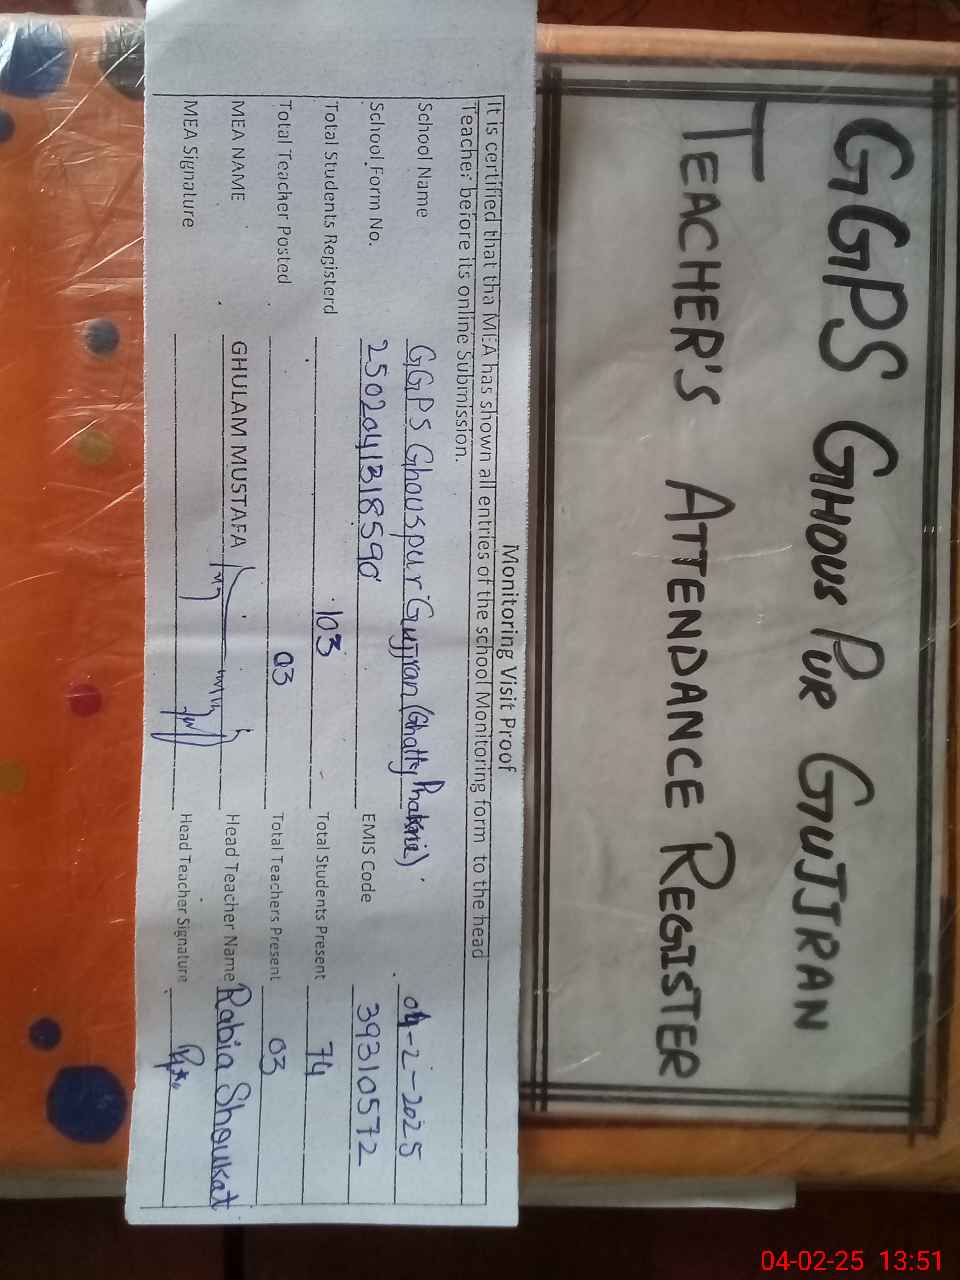 GGPS GHOUS PUR GUJJRAN
TEACHER'S ATTENDANCE REGISTER
Monitoring Visit Proof
It is certified that tha MEA has shown all entries of the school Monitoring form to the head
Teacher before its online Submission.
School Name GGPS Ghouspur Gujjran (Ghatty Phakrie). 04-2-2025
School Form No. 2502041318590 EMIS Code 39310572
Total Students Registerd 103 Total Students Present 74
Total Teacher Posted 03 Total Teachers Present 03
MEA NAME GHULAM MUSTAFA Head Teacher Name Rabia Shoukat
MEA Signature Head Teacher Signature
04-02-25 13:51